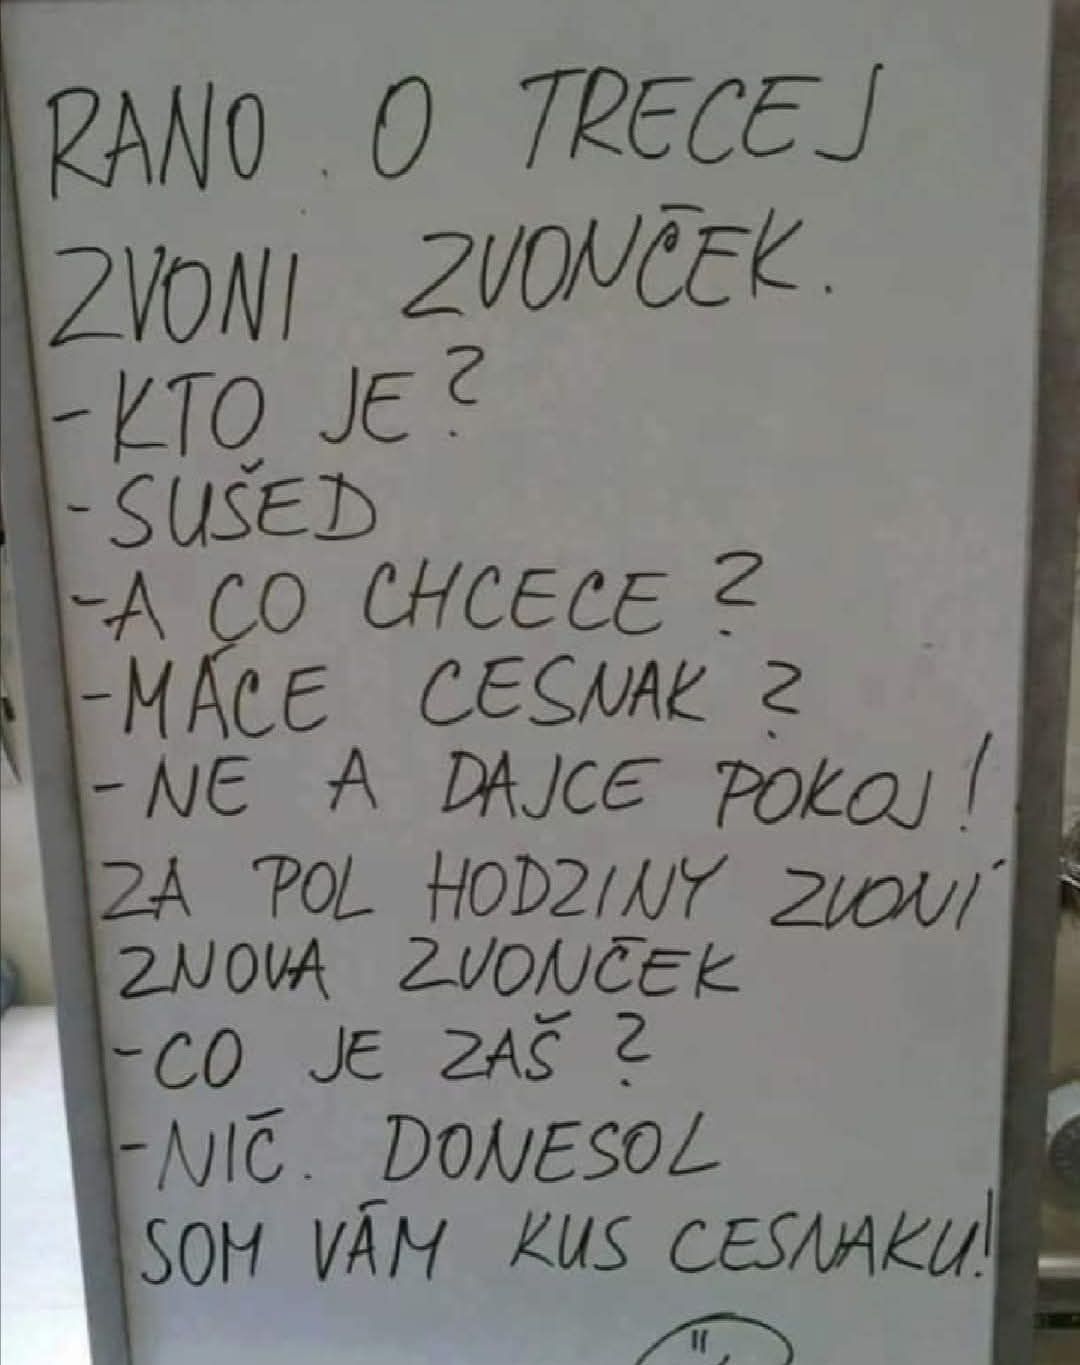 RANO . O TRECEJ
ZVONI ZVONČEK.
-KTO JE?
-SUŠED
-A CO CHCECE?
-MÁCE CESNAK?
-NE A DAJCE POKOJ!
ZA POL HODZINY ZVONÍ
ZNOVA ZVONČEK
-CO JE ZAŠ?
-NIČ. DONESOL
SOM VÁM KUS CESNAKU!